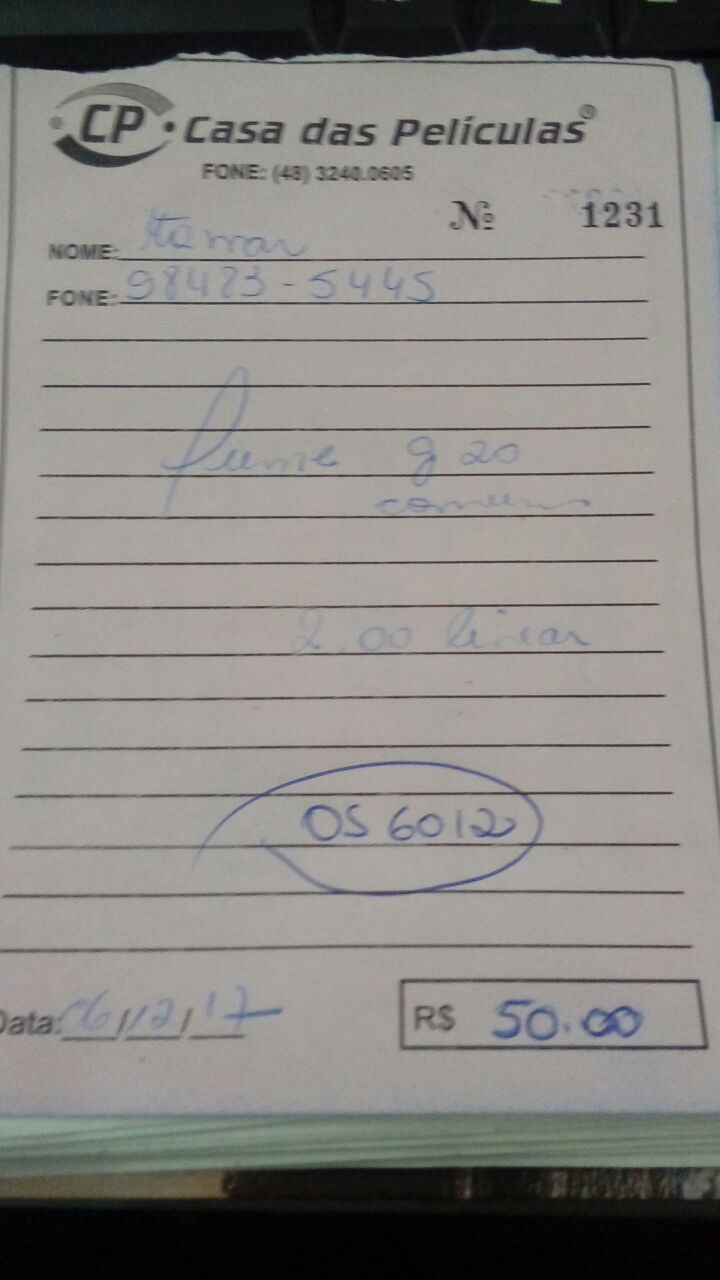 CP • Casa das Películas®
FONE: (48) 3240.0605
Nº 1231
NOME: Itamar
FONE: 98423-5445
fume g 20
comum
2.00 linear
OS 6012
Data: 06/12/17
R$ 50.00